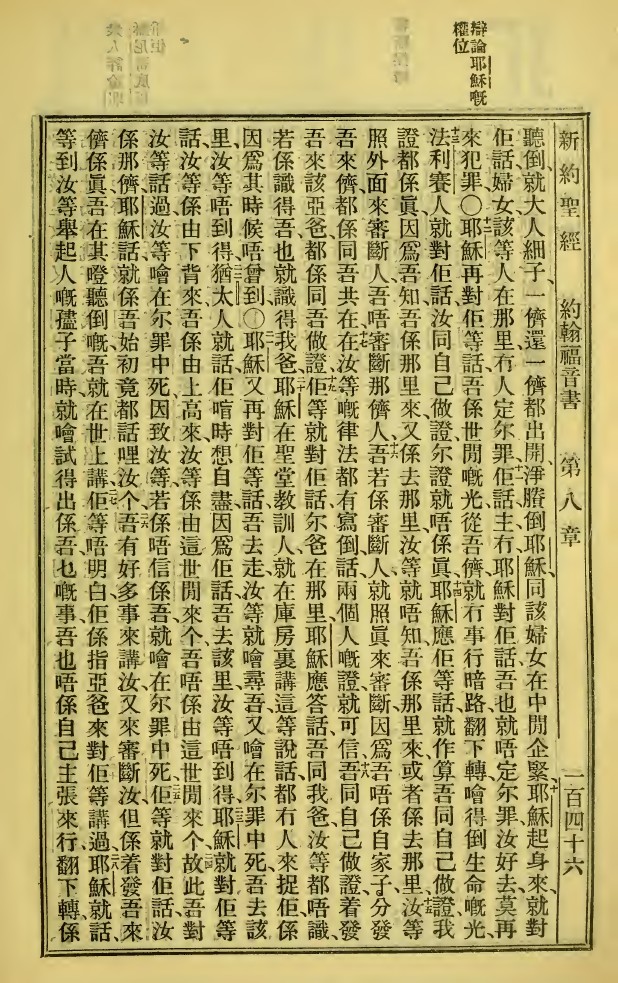 辯論耶穌嘅
權位
新約聖經 約翰福音書 第八章 一百四十六
聽倒、就大人細子、一儕還一儕都出開、淨賸倒耶穌、同該婦女在中間企緊、十耶穌起身來、就對
佢話、婦女、該等人在那里、冇人定尔罪、十一佢話、主、冇、耶穌對佢話、吾也就唔定尔罪、汝好去、莫再
來犯罪、〇十二耶穌再對佢等話、吾係世間嘅光、從吾儕、就冇事行暗路、翻下轉噲得倒生命嘅光、
十三法利賽人就對佢話、汝同自己做證、尔證就唔係眞、十四耶穌應佢等話、就作算吾同自己做證、我
證都係眞、因爲吾知吾係那里來、又係去那里、汝等就唔知吾係那里來、或者係去那里、十五汝等
照外面來審斷人、吾唔審斷那儕人、十六吾若係審斷人、就照眞來審斷、因爲吾唔係自家子、分發
吾來儕、都係同吾共在、十七在汝等嘅律法、都有寫倒話、兩個人嘅證就可信、十八吾同自己做證、着發
吾來該亞爸、都係同吾做證、十九佢等就對佢話、尔爸在那里、耶穌應答話、吾同我爸、汝等都唔識、
若係識得吾、也就識得我爸、二十耶穌在聖堂教訓人、就在庫房裏講這等說話、都冇人來捉佢、係
因爲其時候唔曾到、〇二一耶穌又再對佢等話、吾去走、汝等就噲尋吾、又噲在尔罪中死、吾去該
里、汝等唔到得、二二猶太人就話、佢喑時想自盡、因爲佢話、吾去該里、汝等唔到得、二三耶穌就對佢等
話、汝等係由下背來、吾係由上高來、汝等係由這世間來个、吾唔係由這世間來个、二四故此吾對
汝等話過、汝等噲在尔罪中死、因致汝等若係唔信係吾、就噲在尔罪中死、二五佢等就對佢話、汝
係那儕、耶穌話、就係吾始初竟都話哩汝个、二六吾有好多事來講汝、又來審斷汝、但係着發吾來
儕係眞、吾在其噔聽倒嘅、吾就在世上講、二七佢等唔明白佢係指亞爸來對佢等講過、二八耶穌就話、
等到汝等舉起人嘅孻子當時、就噲試得出係吾、也嘅事吾也唔係自己主張來行、翻下轉係